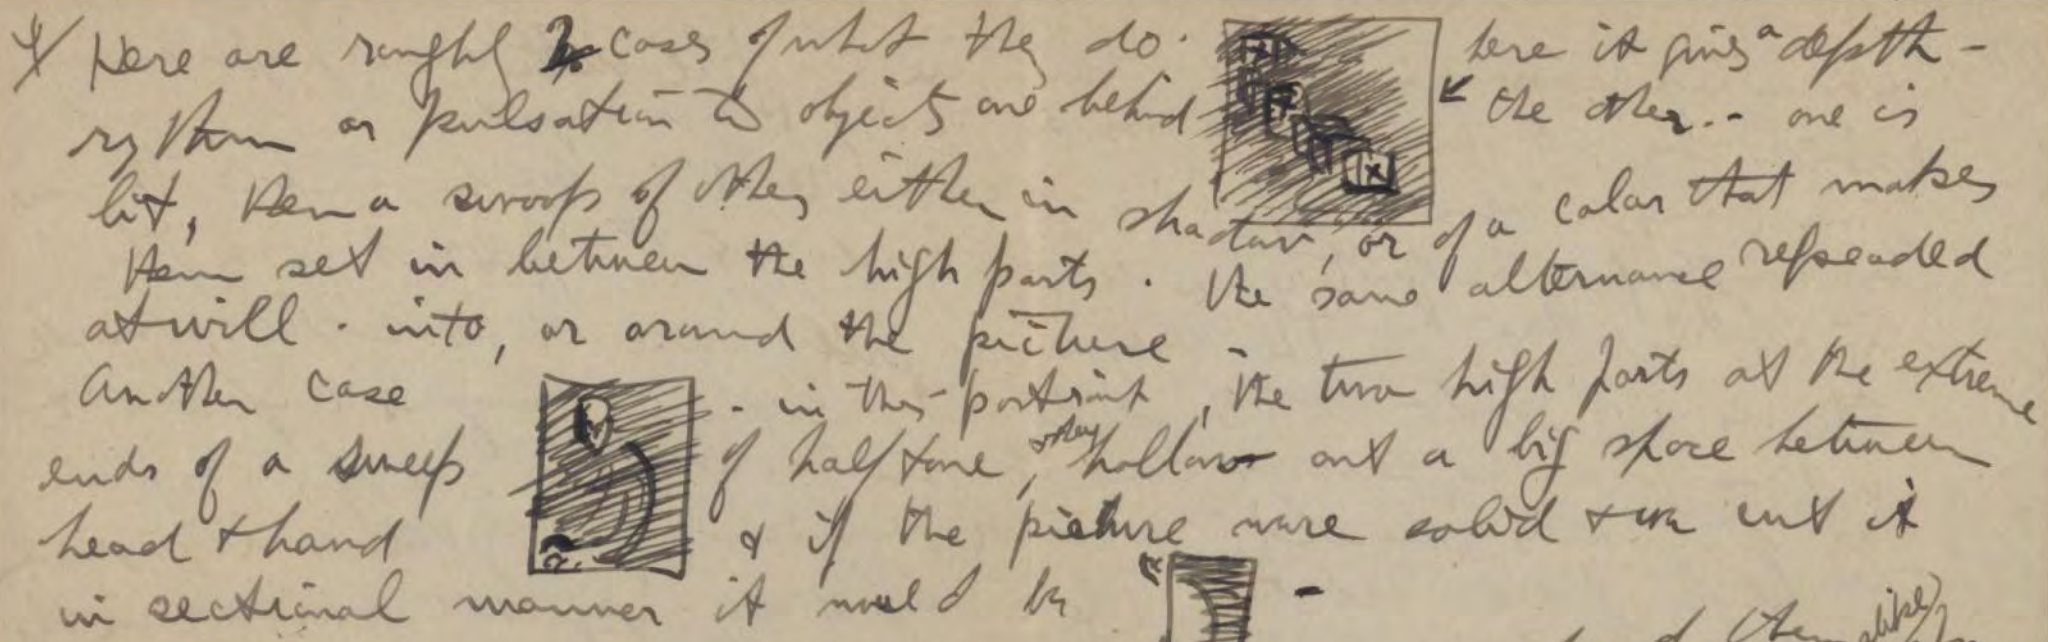 4/ Here are roughly 2 cases of what they do. here it gives a depth -
rythm or pulsation to objects one behind the other.. one is
lit, then a swoop of others either in shadow, or of a color that makes
them set in between the high parts. The same alternance repeaded
at will. into, or around the picture -
Another case - in this portrait, the two high parts at the extreme
ends of a sweep of half tone, they hollow out a big space between
head + hand & if the picture were solid + we cut it
in sectional manner it would be -
like